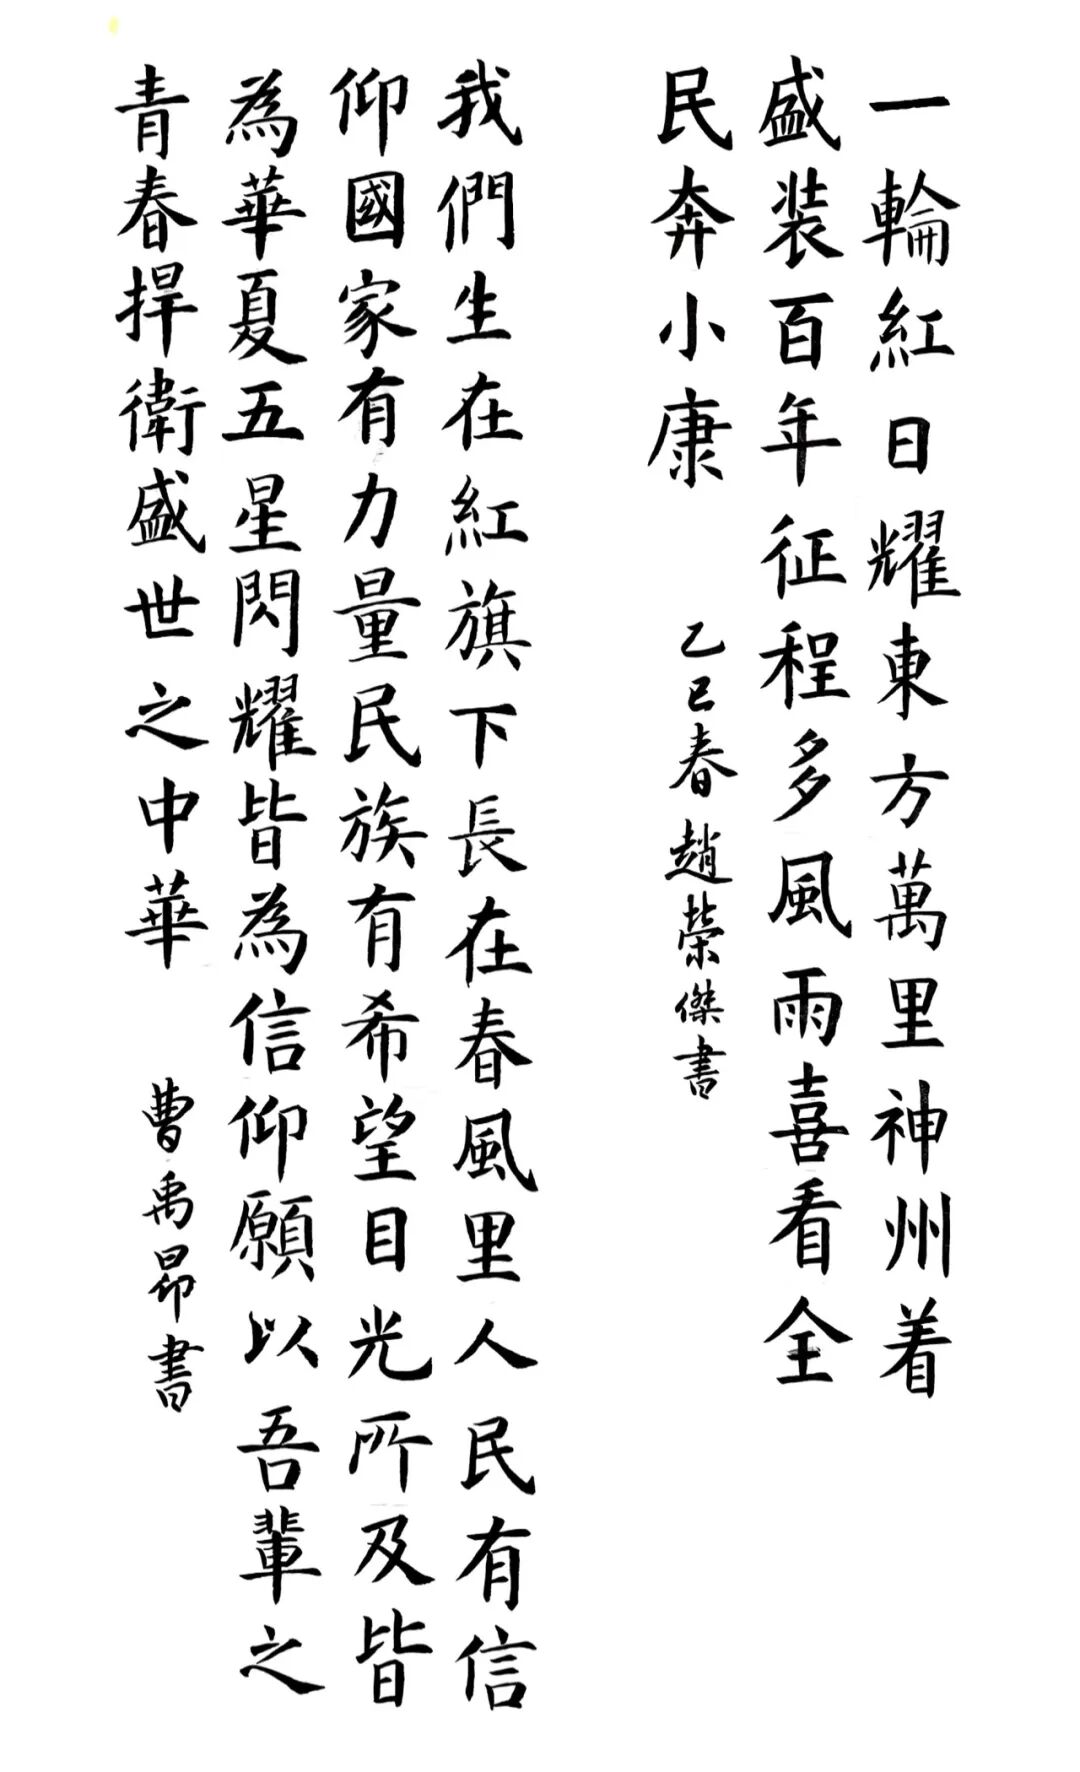 一輪紅日耀東方萬里神州着
盛装百年征程多風雨喜看全
民奔小康
乙巳春趙榮傑書
我們生在紅旗下長在春風里人民有信
仰國家有力量民族有希望目光所及皆
為華夏五星閃耀皆為信仰願以吾輩之
青春捍衛盛世之中華
曹禹昂書